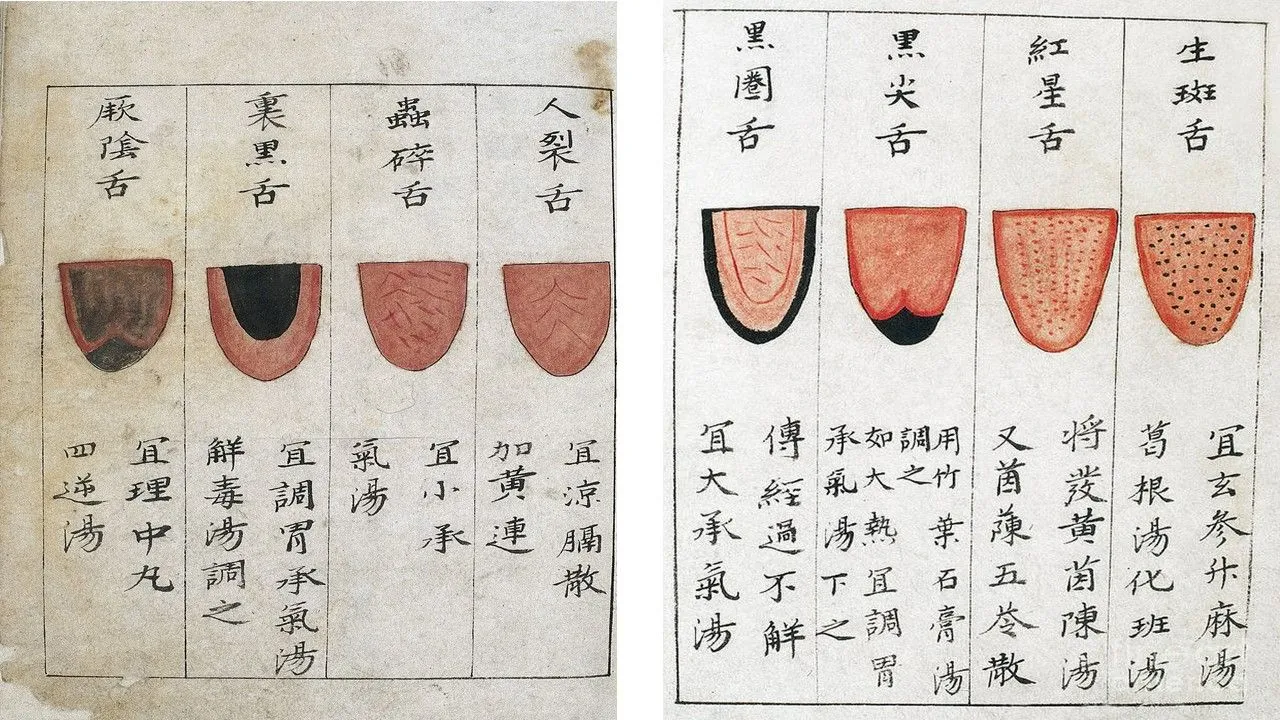 生斑舌
宜玄參升麻湯
葛根湯化班湯
紅星舌
将發黃茵陳湯
又茵蔯五苓散
黑尖舌
用竹葉石膏湯
調之
如大熱宜調胃
承氣湯下之
黑圈舌
傳經過不解
宜大承氣湯
人裂舌
宜涼膈散
加黃連
蟲碎舌
宜小承
氣湯
裏黑舌
宜調胃承氣湯
解毒湯調之
厥陰舌
宜理中丸
四逆湯